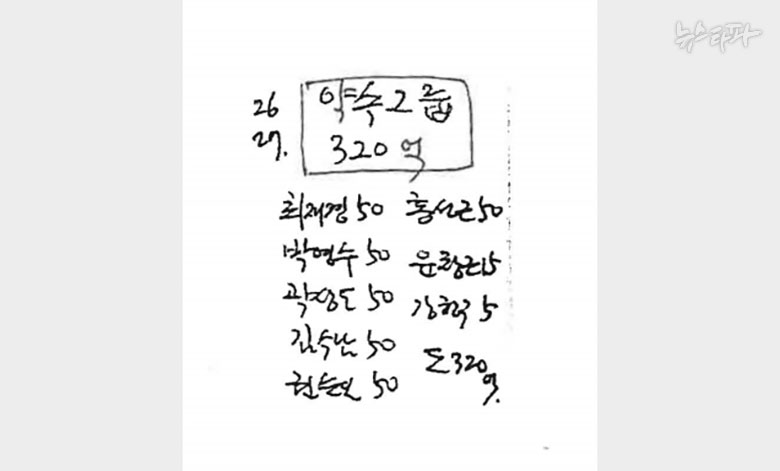 26 약속그룹
27. 320억
최재경 50 홍선근 50
박영수 50 윤창근 15
곽상도 50 강한구 5
김수남 50
320억.
권순일 50
뉴스타파